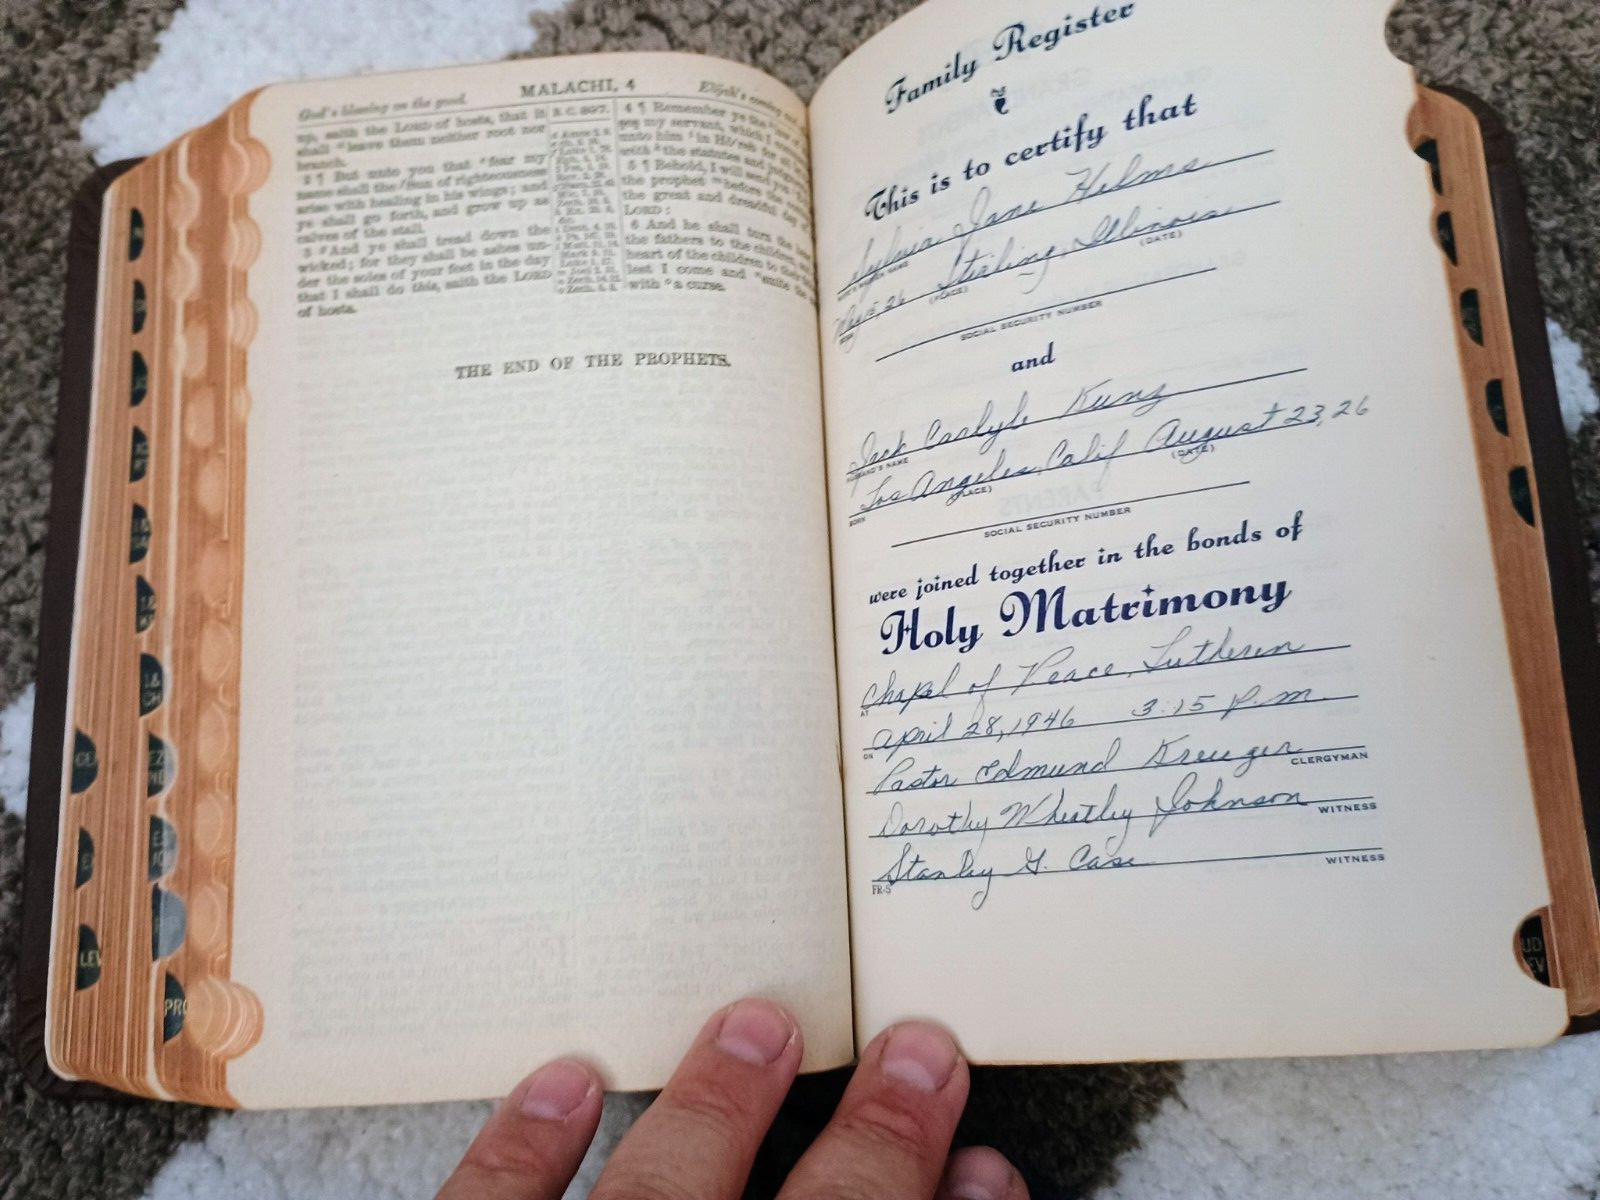 God's blessing on the good.
MALACHI, 4
Elijah's coming
up, saith the LORD of hosts, that it
shall leave them neither root nor
branch.
2 ¶ But unto you that fear my
name shall the Sun of righteousness
arise with healing in his wings; and
ye shall go forth, and grow up as
calves of the stall.
3 And ye shall tread down the
wicked; for they shall be ashes un-
der the soles of your feet in the day
that I shall do this, saith the LORD
of hosts.
B. C. 397.
4 ¶ Remember ye the law of
my servant, which I
unto him in Hō'reb for all
with the statutes and judgments
5 ¶ Behold, I will send you
the prophet before the
the great and dreadful day of
LORD:
6 And he shall turn the heart
the fathers to the children, and
heart of the children to their
lest I come and smite the
with a curse.
THE END OF THE PROPHETS.
Family Register
This is to certify that
Sylvia Jane Helms
WIFE'S MAIDEN NAME
May 15, 26 Stirling, Illinois
BORN (PLACE) (DATE)
SOCIAL SECURITY NUMBER
and
Jack Carlyle Kunz
HUSBAND'S NAME
Los Angeles, Calif August 23, 26
BORN (PLACE) (DATE)
SOCIAL SECURITY NUMBER
were joined together in the bonds of
Holy Matrimony
AT Chapel of Peace, Lutheren
ON April 28, 1946 3:15 P.m.
Pastor Edmund Kreuger CLERGYMAN
Dorothy Wheatley Johnson WITNESS
Stanley G. Case WITNESS
FR-5
LEV
PRO